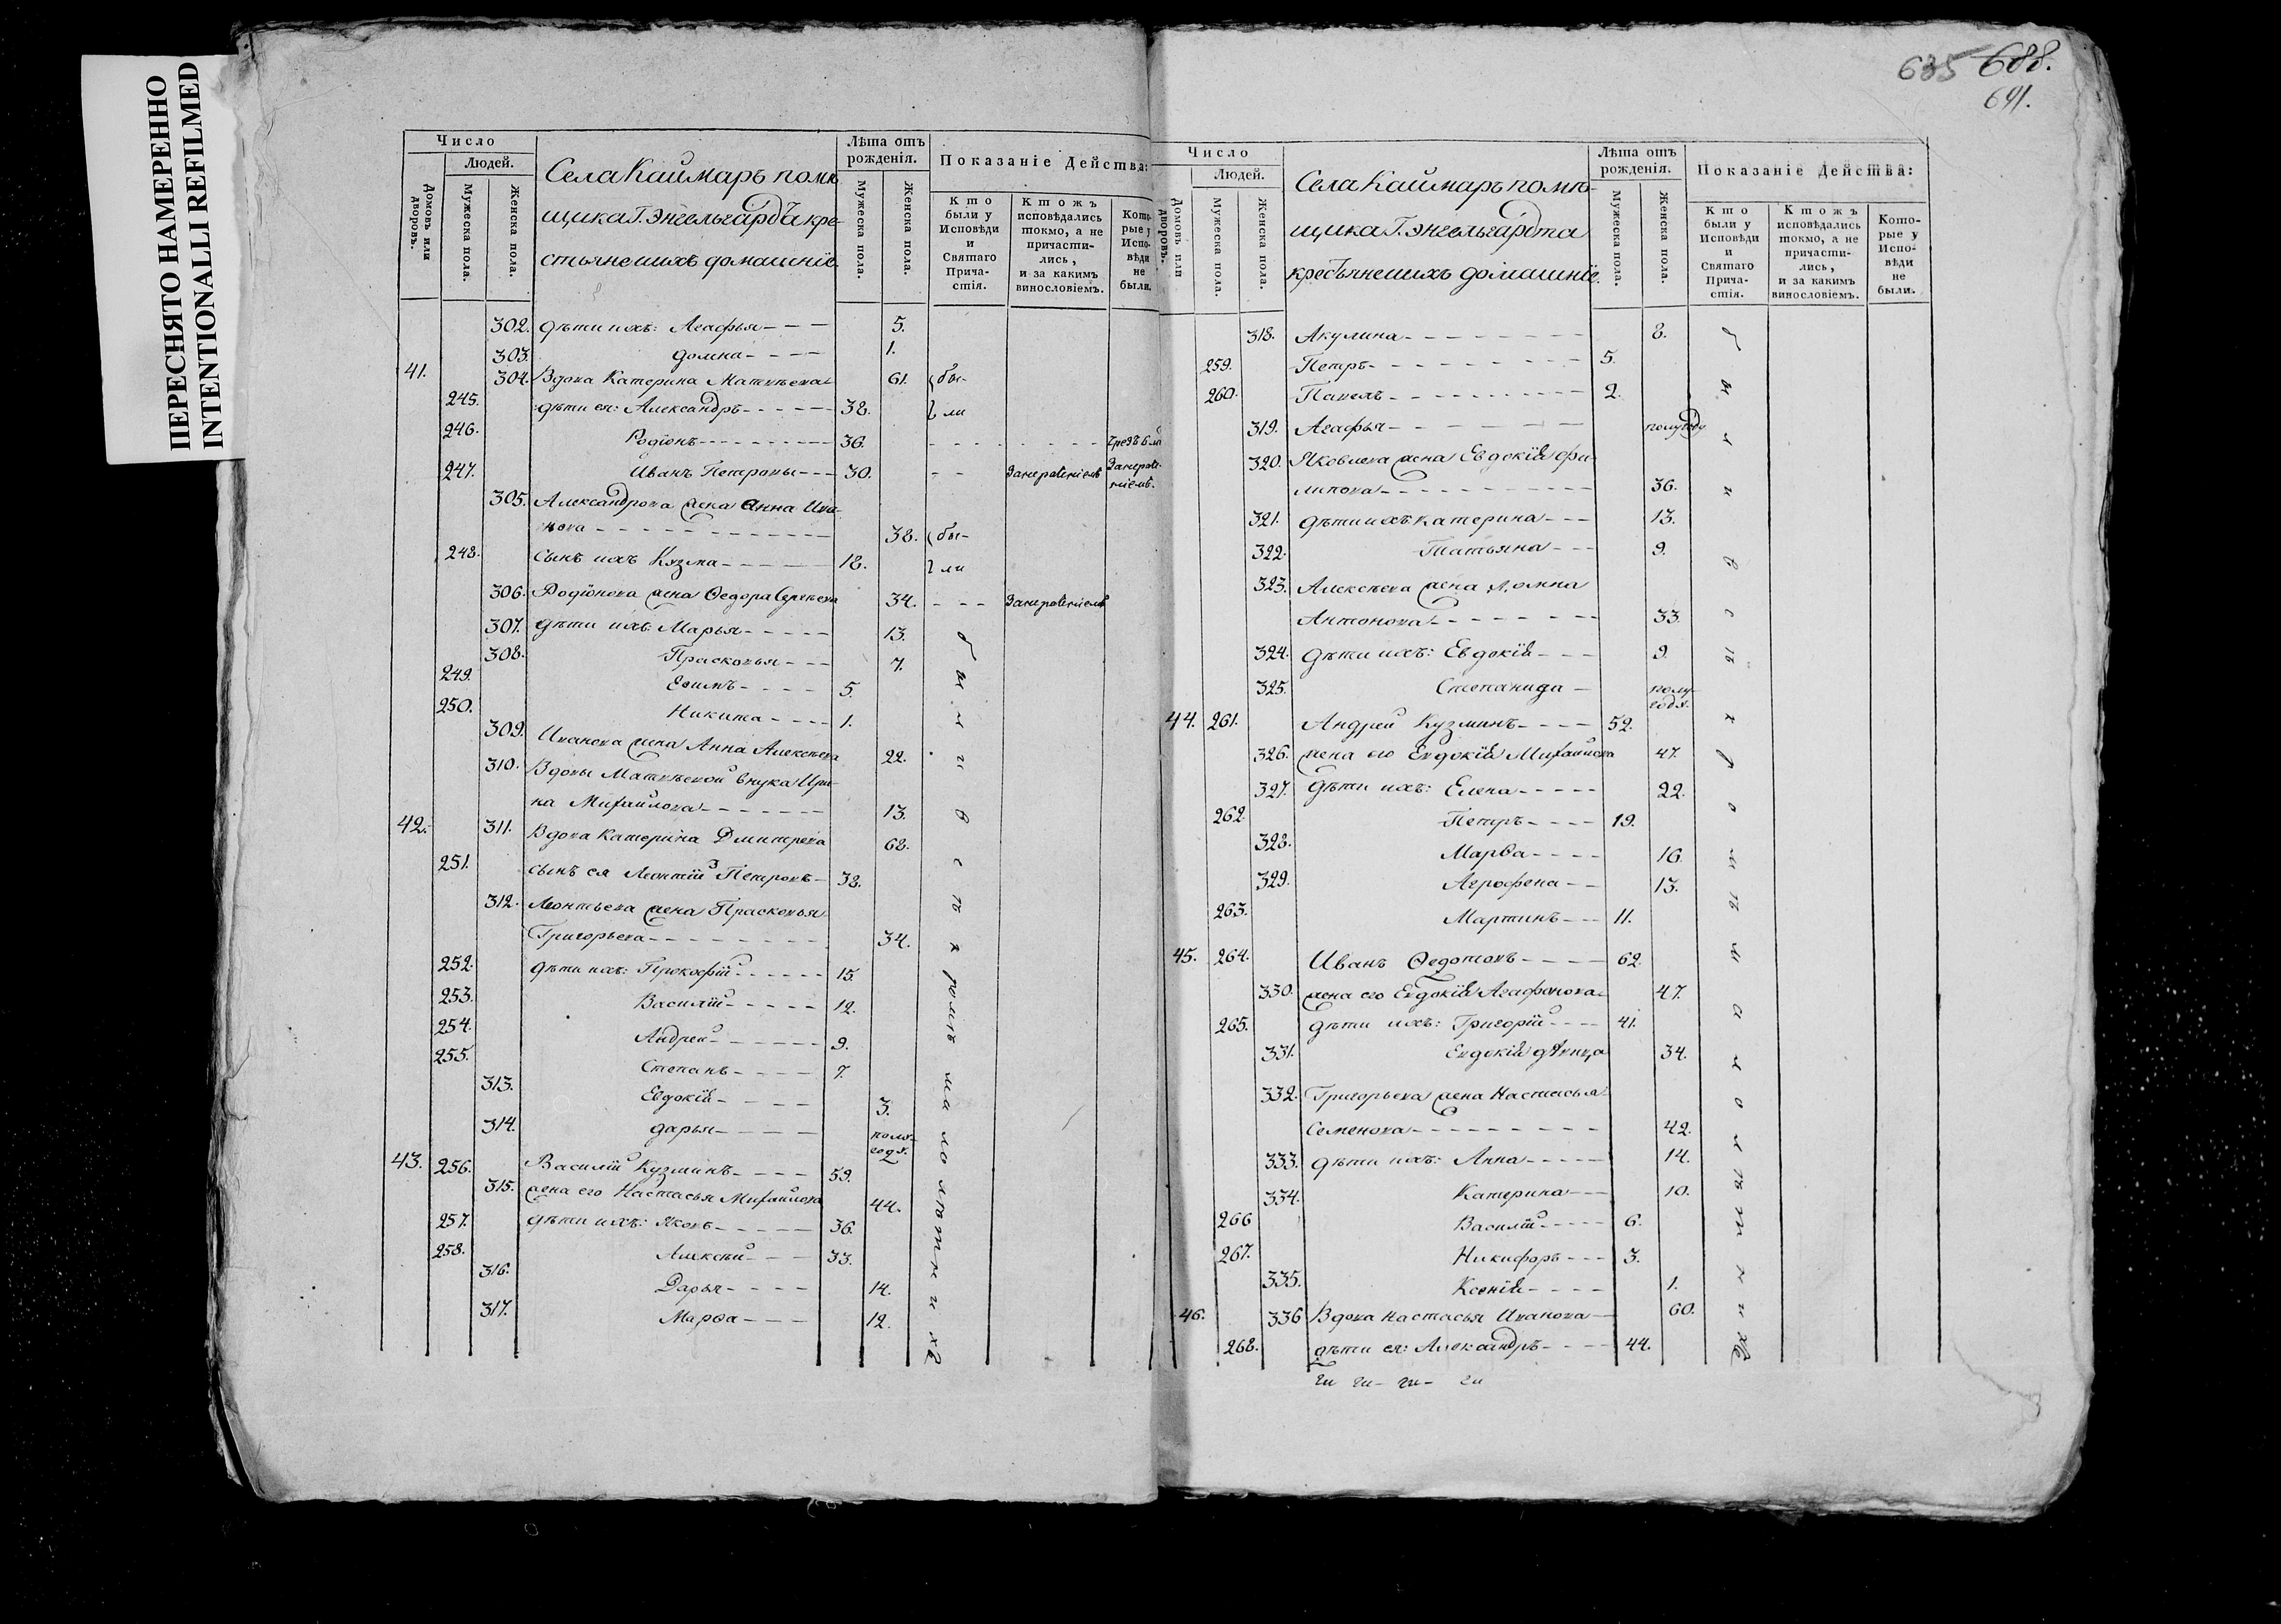 ПЕРЕСНЯТО НАМЕРЕННО
INTENTIONALLI REFILMED
635 688.
691.
Число
Людей.
Домовъ или дворовъ.
Мужеска пола.
Женска пола.
Села Каймаръ помѣ-
щика Г. Энгельгардта кре-
стьяне и ихъ домашніе
Лѣта отъ рожденія.
Мужеска пола.
Женска пола.
Показаніе Действа:
Кто были у Исповѣди и Святаго Причастія.
Ктожъ исповѣдались токмо, а не причастились, и за какимъ винословіемъ.
Которые у Исповѣди не были.
302. дѣти ихъ: Агафья - - - 5.
303. Домна - - - - 1.
41. 304. Вдова Катерина Матвѣева 61. бы-
245. дѣти ея: Александръ - - - - - 38. ли
246. Родіонъ - - - - - - - - - 36.
247. Иванъ Петровы - - - 30.
305. Александрова жена Анна Ива-
нова - - - - - - - - - - - 38. бы-
248. сынъ ихъ Кузма - - - - - 18. ли
306. Родіонова жена Ѳедора Сергѣева 34.
307. дѣти ихъ: Марья - - - - - 13.
308. Прасковья - - - 7.
249. Ефимъ - - - - 5.
250. Никита - - - - 1.
309. Иванова жена Анна Алексѣева 22.
310. Вдовы Матвѣевой внука Ири-
на Михайлова - - - - - - - 13.
42. 311. Вдова Катерина Дмитрева 68.
251. сынъ ея Леонтій Петровъ - 38.
312. Леонтьева жена Прасковья
Григорьева - - - - - - - - - 34.
252. дѣти ихъ: Прокофій - - - - - - 15.
253. Василій - - - - - 12.
254. Андрей - - - - - - 9.
255. Степанъ - - - - 7.
313. Евдокія - - - - 3.
314. Дарья - - - - - полу-
года.
43. 256. Василій Кузминъ - - - - 59.
315. жена его Настасья Михайлова 44.
257. дѣти ихъ: Яковъ - - - - - 36.
258. Алексѣй - - - 33.
316. Дарья - - - - 14.
317. Марфа - - - 12.
были всѣ кромѣ малолѣтнихъ
Число
Людей.
Домовъ или дворовъ.
Мужеска пола.
Женска пола.
Села Каймаръ помѣ-
щика Г. Энгельгардта
крестьяне и ихъ домашніе.
Лѣта отъ рожденія.
Мужеска пола.
Женска пола.
Показаніе Действа:
Кто были у Исповѣди и Святаго Причастія.
Ктожъ исповѣдались токмо, а не причастились, и за какимъ винословіемъ.
Которые у Исповѣди не были.
318. Акулина - - - - - - - - 8.
259. Петръ - - - - - - - - - 5.
260. Павелъ - - - - - - - - - - 2.
319. Агафья - - - - - - - полугоду
320. Яковлева жена Евдокія Фи-
липова - - - - - - - - - - - 36.
321. дѣти ихъ Катерина - - - 13.
322. Татьяна - - - 9.
323. Алексѣева жена Домна
Антонова - - - - - - - - - 33.
324. дѣти ихъ: Евдокія - - - 9.
325. Степанида - полу-
года.
44. 261. Андрей Кузминъ - - - - 52.
326. жена его Евдокія Михайлова 47.
327. дѣти ихъ: Елена - - - - - 22.
262. Петръ - - - - 19.
328. Марфа - - - - 16.
329. Агрофена - - 13.
263. Мартинъ - - - 11.
45. 264. Иванъ Ѳедотовъ - - - - 62.
330. жена его Евдокія Агафонова 47.
265. дѣти ихъ: Григорій - - - - 41.
331. Евдокія дѣвица 34.
332. Григорьева жена Настасья
Семенова - - - - - - - - - 42.
333. дѣти ихъ: Анна - - - - - 14.
334. Катерина - - - 10.
266 Василій - - - - - 6.
267. Никифоръ - - - 3.
335. Ксенія - - - - 1.
46. 336 Вдова Настасья Иванова - 60.
268. дѣти ея: Александръ - - - - 44.
были всѣ кромѣ малолѣтнихъ